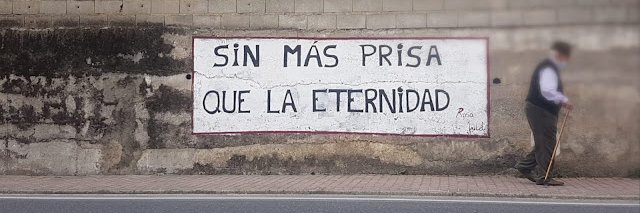 SiN MÁS PRiSA
QUE LA ETERNiDAD